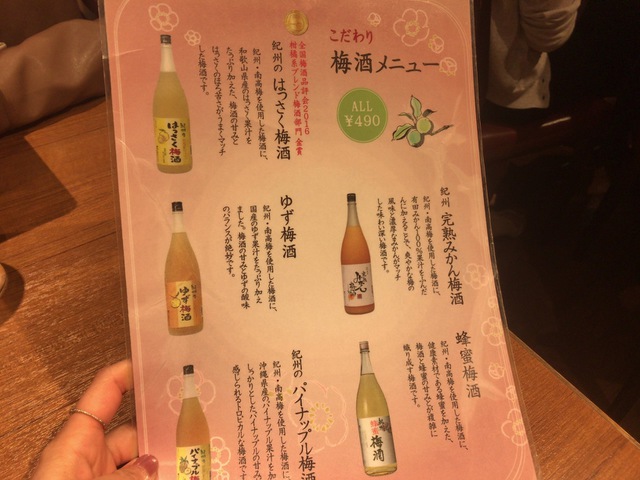 こだわり
梅酒メニュー
ALL
¥490
全国梅酒品評会2016
柑橘系ブレンド梅酒部門 金賞
紀州の はっさく梅酒
紀州・南高梅を使用した梅酒に、
和歌山県産のはっさく果汁を
たっぷり加えた、梅酒の甘みと
はっさくのほろ苦さがうまくマッチ
した梅酒です。
はっさく梅酒
紀州 完熟みかん梅酒
紀州・南高梅を使用した梅酒に、
有田みかん100%果汁をふんだ
んに加えることで、爽やかな梅の
風味と濃厚なみかんがマッチ
した味わい深い梅酒です。
みかん
ゆず梅酒
紀州・南高梅を使用した梅酒に、
国産のゆず果汁をたっぷり加え
ました。梅酒の甘みとゆずの酸味
のバランスが絶妙です。
ゆず梅酒
蜂蜜梅酒
紀州・南高梅を使用した梅酒に、
健康素材である蜂蜜を加えた、
梅酒と蜂蜜の甘みとが複雑に
織り成す梅酒です。
梅酒
紀州の パイナップル梅酒
紀州・南高梅を使用した梅酒に、
沖縄県産のパイナップル果汁を加
しっかりとしたパイナップルの甘み
感じられるトロピカルな梅酒
パイナップル梅